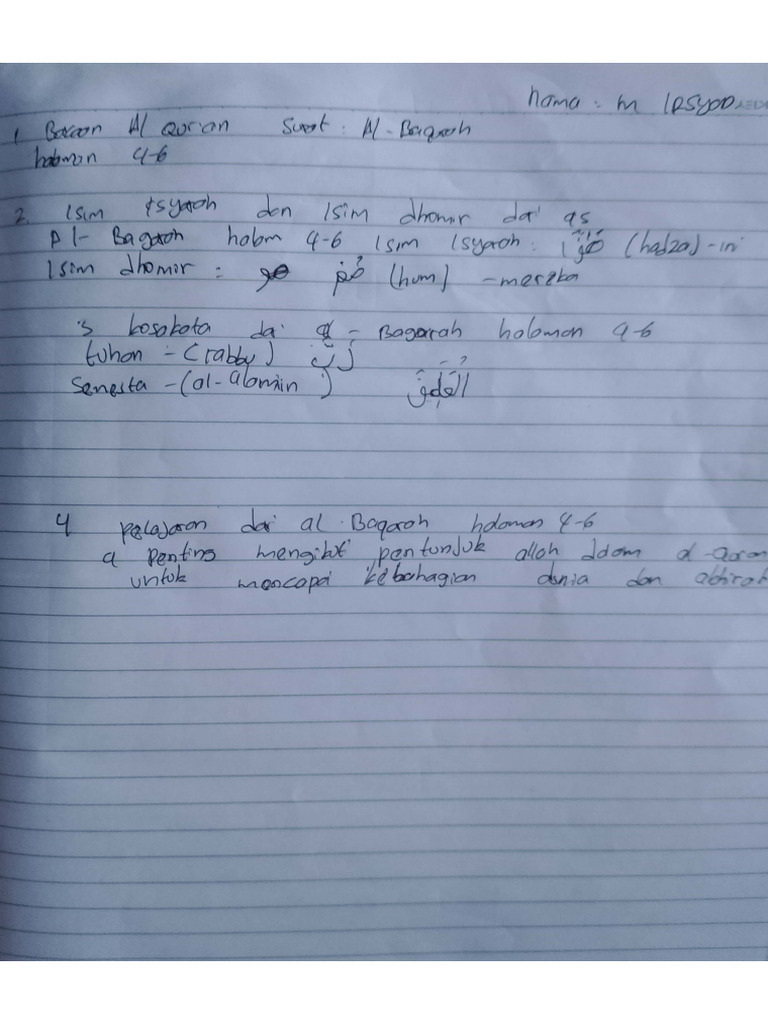 nama : m IRSYAD
1 Bacaan Al Qur'an Surat : Al-Baqarah
halaman 4-6
2. Isim Isyaroh dan Isim dhomir dari qs
Al-Baqarah halam 4-6 Isim Isyaroh : (hadza)-ini
Isim dhomir : هُمْ (hum) -mereka
3 kosakata dari al-Baqarah halaman 4-6
tuhan - (rabby) رَبّ
Semesta - (al-alamin)
4 pelajaran dari al Baqaroh halaman 4-6
a penting mengikuti pentunjuk allah dalam al-Quran
untuk mencapai kebahagian dunia dan akhirat